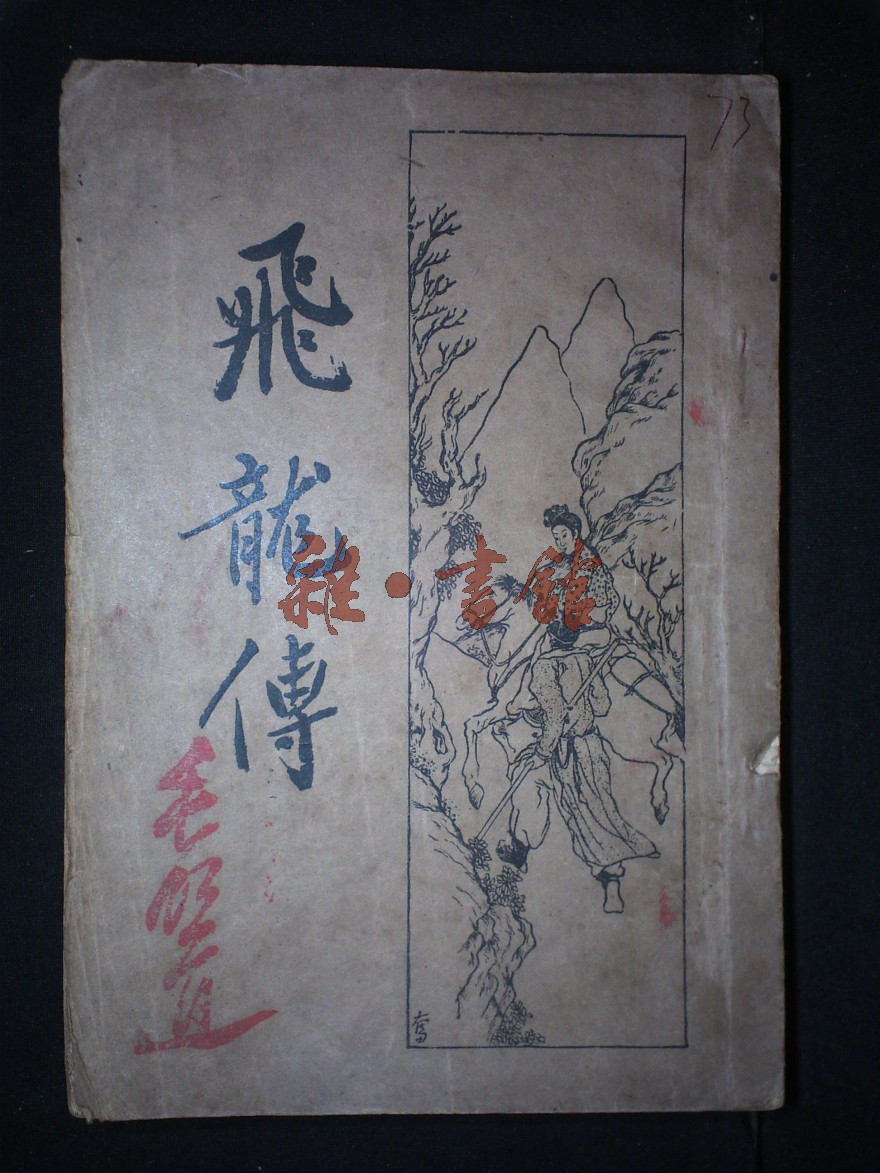 73
飛龍傳
雜·書館